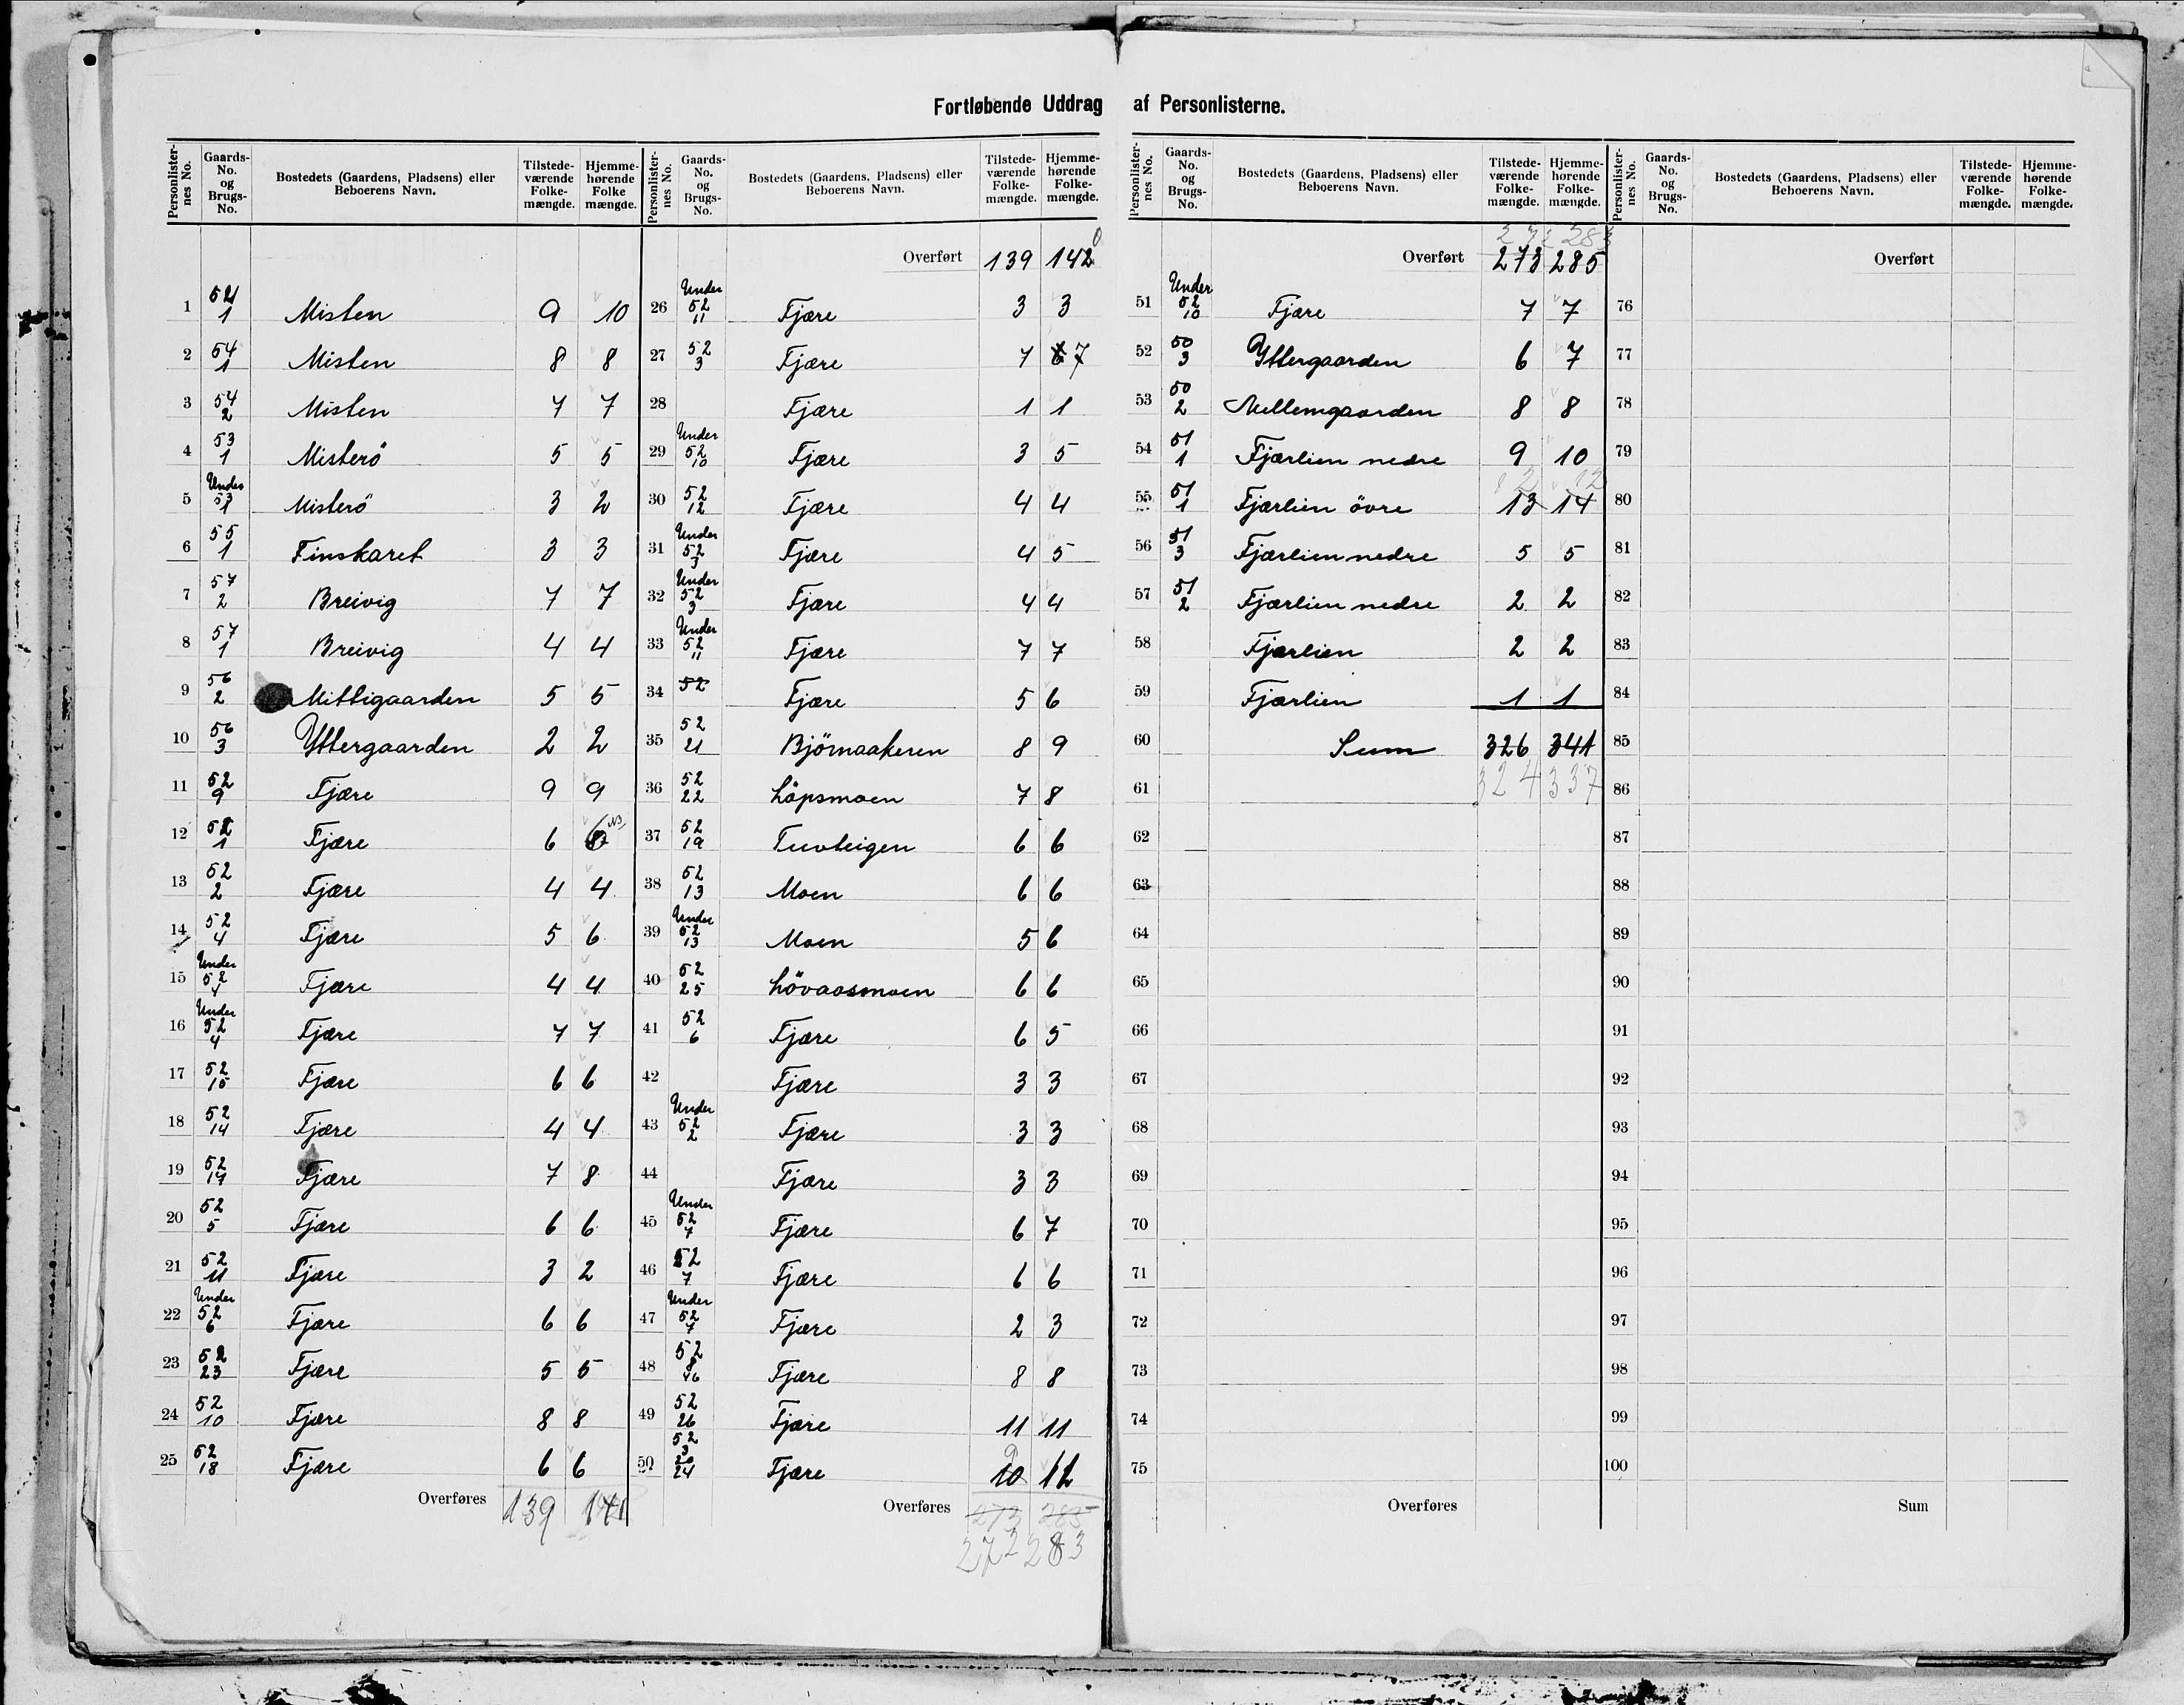 Fortløbende Uddrag af Personlisterne.
Personlisternes No. Gaards-No. og Brugs-No. Bostedets (Gaardens, Pladsens) eller Beboerens Navn. Tilstedeværende Folkemængde. Hjemmehørende Folkemængde.
1 1 Misten 9 10
2 54 1 Misten 8 8
3 54 2 Misten 7 7
4 53 1 Misterö 5 5
5 Under 53 1 Misterö 3 2
6 55 1 Finskaret 3 3
7 57 2 Breivig 7 7
8 57 1 Breivig 4 4
9 56 2 Mittigaarden 5 5
10 56 3 Yttergaarden 2 2
11 52 9 Fjære 9 9
12 52 1 Fjære 6
13 52 2 Fjære 4 4
14 52 4 Fjære 5 6
15 Under 52 4 Fjære 4 4
16 Under 52 4 Fjære 7 7
17 52 15 Fjære 6 6
18 52 14 Fjære 4 4
19 52 17 Fjære 7 8
20 52 5 Fjære 6 6
21 52 11 Fjære 3 2
22 Under 52 6 Fjære 6 6
23 52 23 Fjære 5 5
24 52 10 Fjære 8 8
25 52 18 Fjære 6 6
Overføres 139 141
Personlisternes No. Gaards-No. og Brugs-No. Bostedets (Gaardens, Pladsens) eller Beboerens Navn. Tilstedeværende Folkemængde. Hjemmehørende Folkemængde.
Overført 139 142
26 Under 52 11 Fjære 3 3
27 52 3 Fjære 7 6 7
28 Fjære 1 1
29 Under 52 10 Fjære 3 5
30 52 12 Fjære 4 4
31 Under 52 3 Fjære 4 5
32 Under 52 3 Fjære 4 4
33 Under 52 11 Fjære 7 7
34 52 Fjære 5 6
35 52 21 Björnaakeren 8 9
36 52 22 Löpsmoen 7 8
37 52 19 Tuvteigen 6 6
38 52 13 Moen 6 6
39 Under 52 13 Moen 5 6
40 52 25 Lövaasmoen 6 6
41 52 6 Fjære 6 5
42 Fjære 3 3
43 Under 52 2 Fjære 3 3
44 Fjære 3 3
45 Under 52 7 Fjære 6 7
46 52 7 Fjære 6 6
47 Under 52 7 Fjære 2 3
48 52 8 16 Fjære 8 8
49 52 26 Fjære 11 11
50 52 3 20 24 Fjære 9 10 12
Overføres 273 285
272 283
Personlisternes No. Gaards-No. og Brugs-No. Bostedets (Gaardens, Pladsens) eller Beboerens Navn. Tilstedeværende Folkemængde. Hjemmehørende Folkemængde.
272 283
Overført 273 285
51 Under 52 10 Fjære 7 7
52 50 3 Yttergaarden 6 7
53 50 2 Mellemgaarden 8 8
54 51 1 Fjærlien nedre 9 10
12 12
55 51 1 Fjærlien övre 13 14
56 51 3 Fjærlien nedre 5 5
57 51 2 Fjærlien nedre 2 2
58 Fjærlien 2 2
59 Fjærlien 1 1
60 Sum 326 341
61 324 337
62
63
64
65
66
67
68
69
70
71
72
73
74
75
Overføres
Personlisternes No. Gaards-No. og Brugs-No. Bostedets (Gaardens, Pladsens) eller Beboerens Navn. Tilstedeværende Folkemængde. Hjemmehørende Folkemængde.
Overført
76
77
78
79
80
81
82
83
84
85
86
87
88
89
90
91
92
93
94
95
96
97
98
99
100
Sum